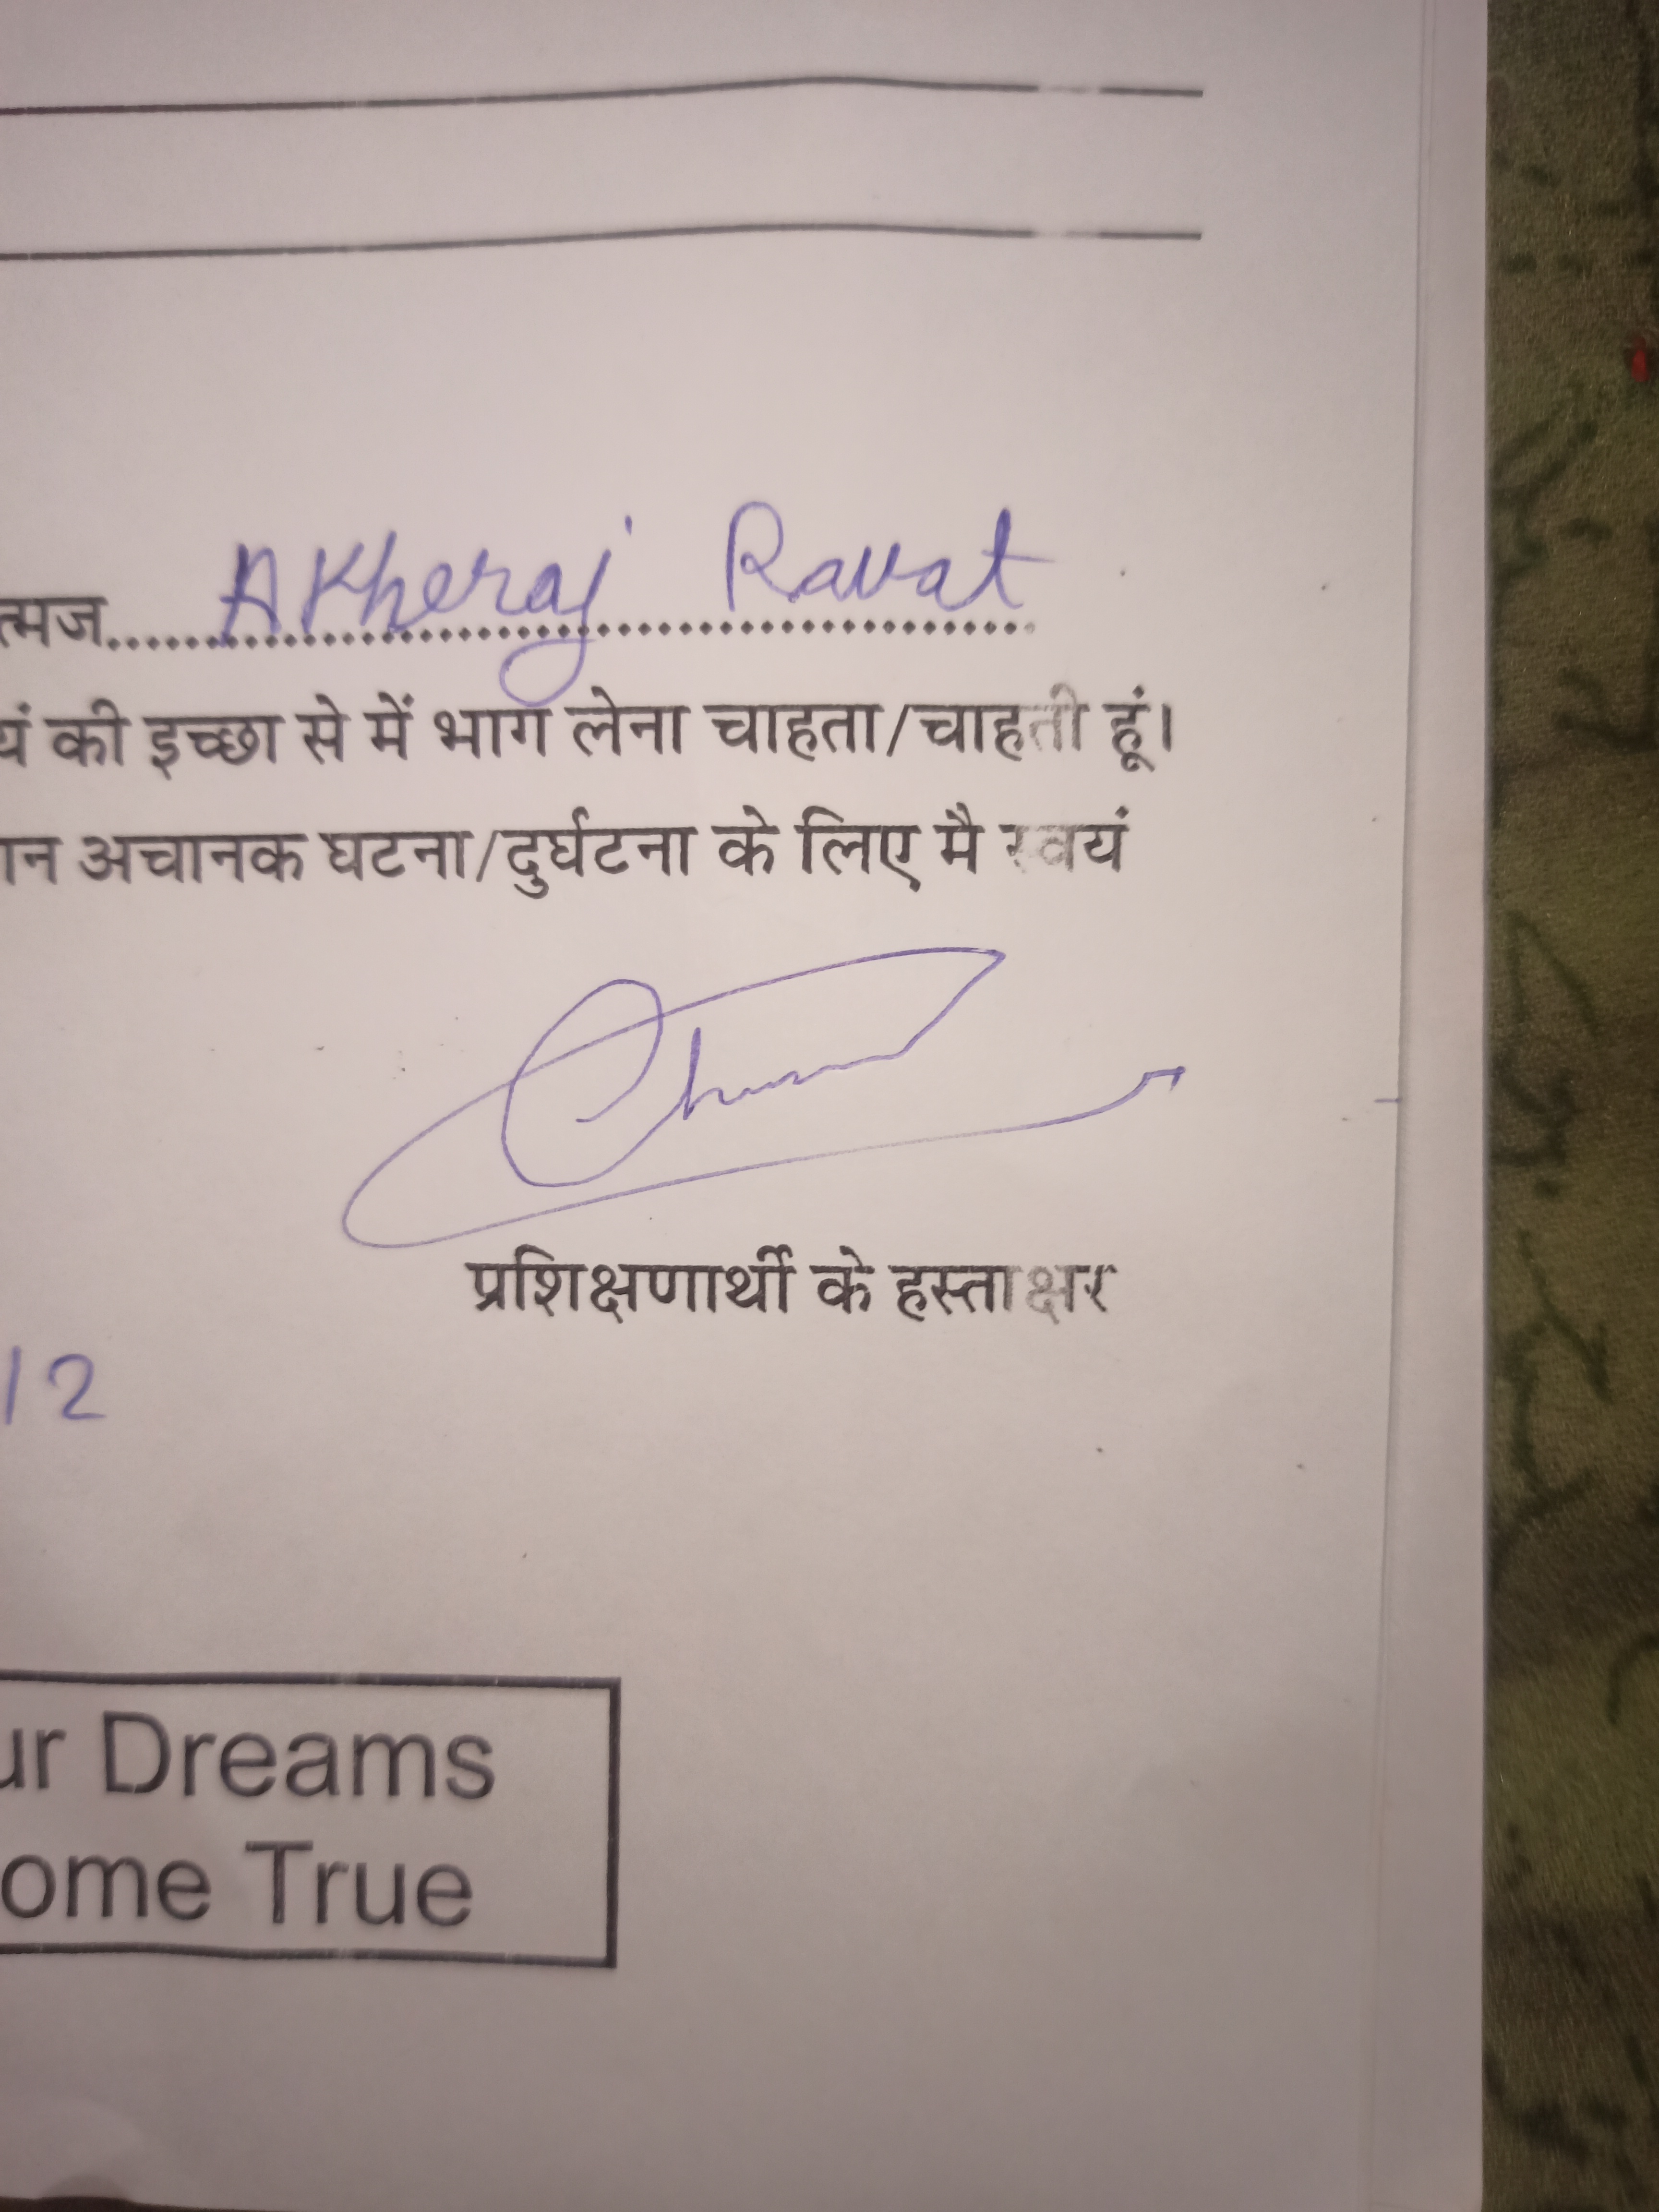 त्मज.......... AKheraj Ravat
यं की इच्छा से में भाग लेना चाहता/चाहती हूं।
ान अचानक घटना/दुर्घटना के लिए मै स्वयं
प्रशिक्षणार्थी के हस्ताक्षर
12
ur Dreams
ome True